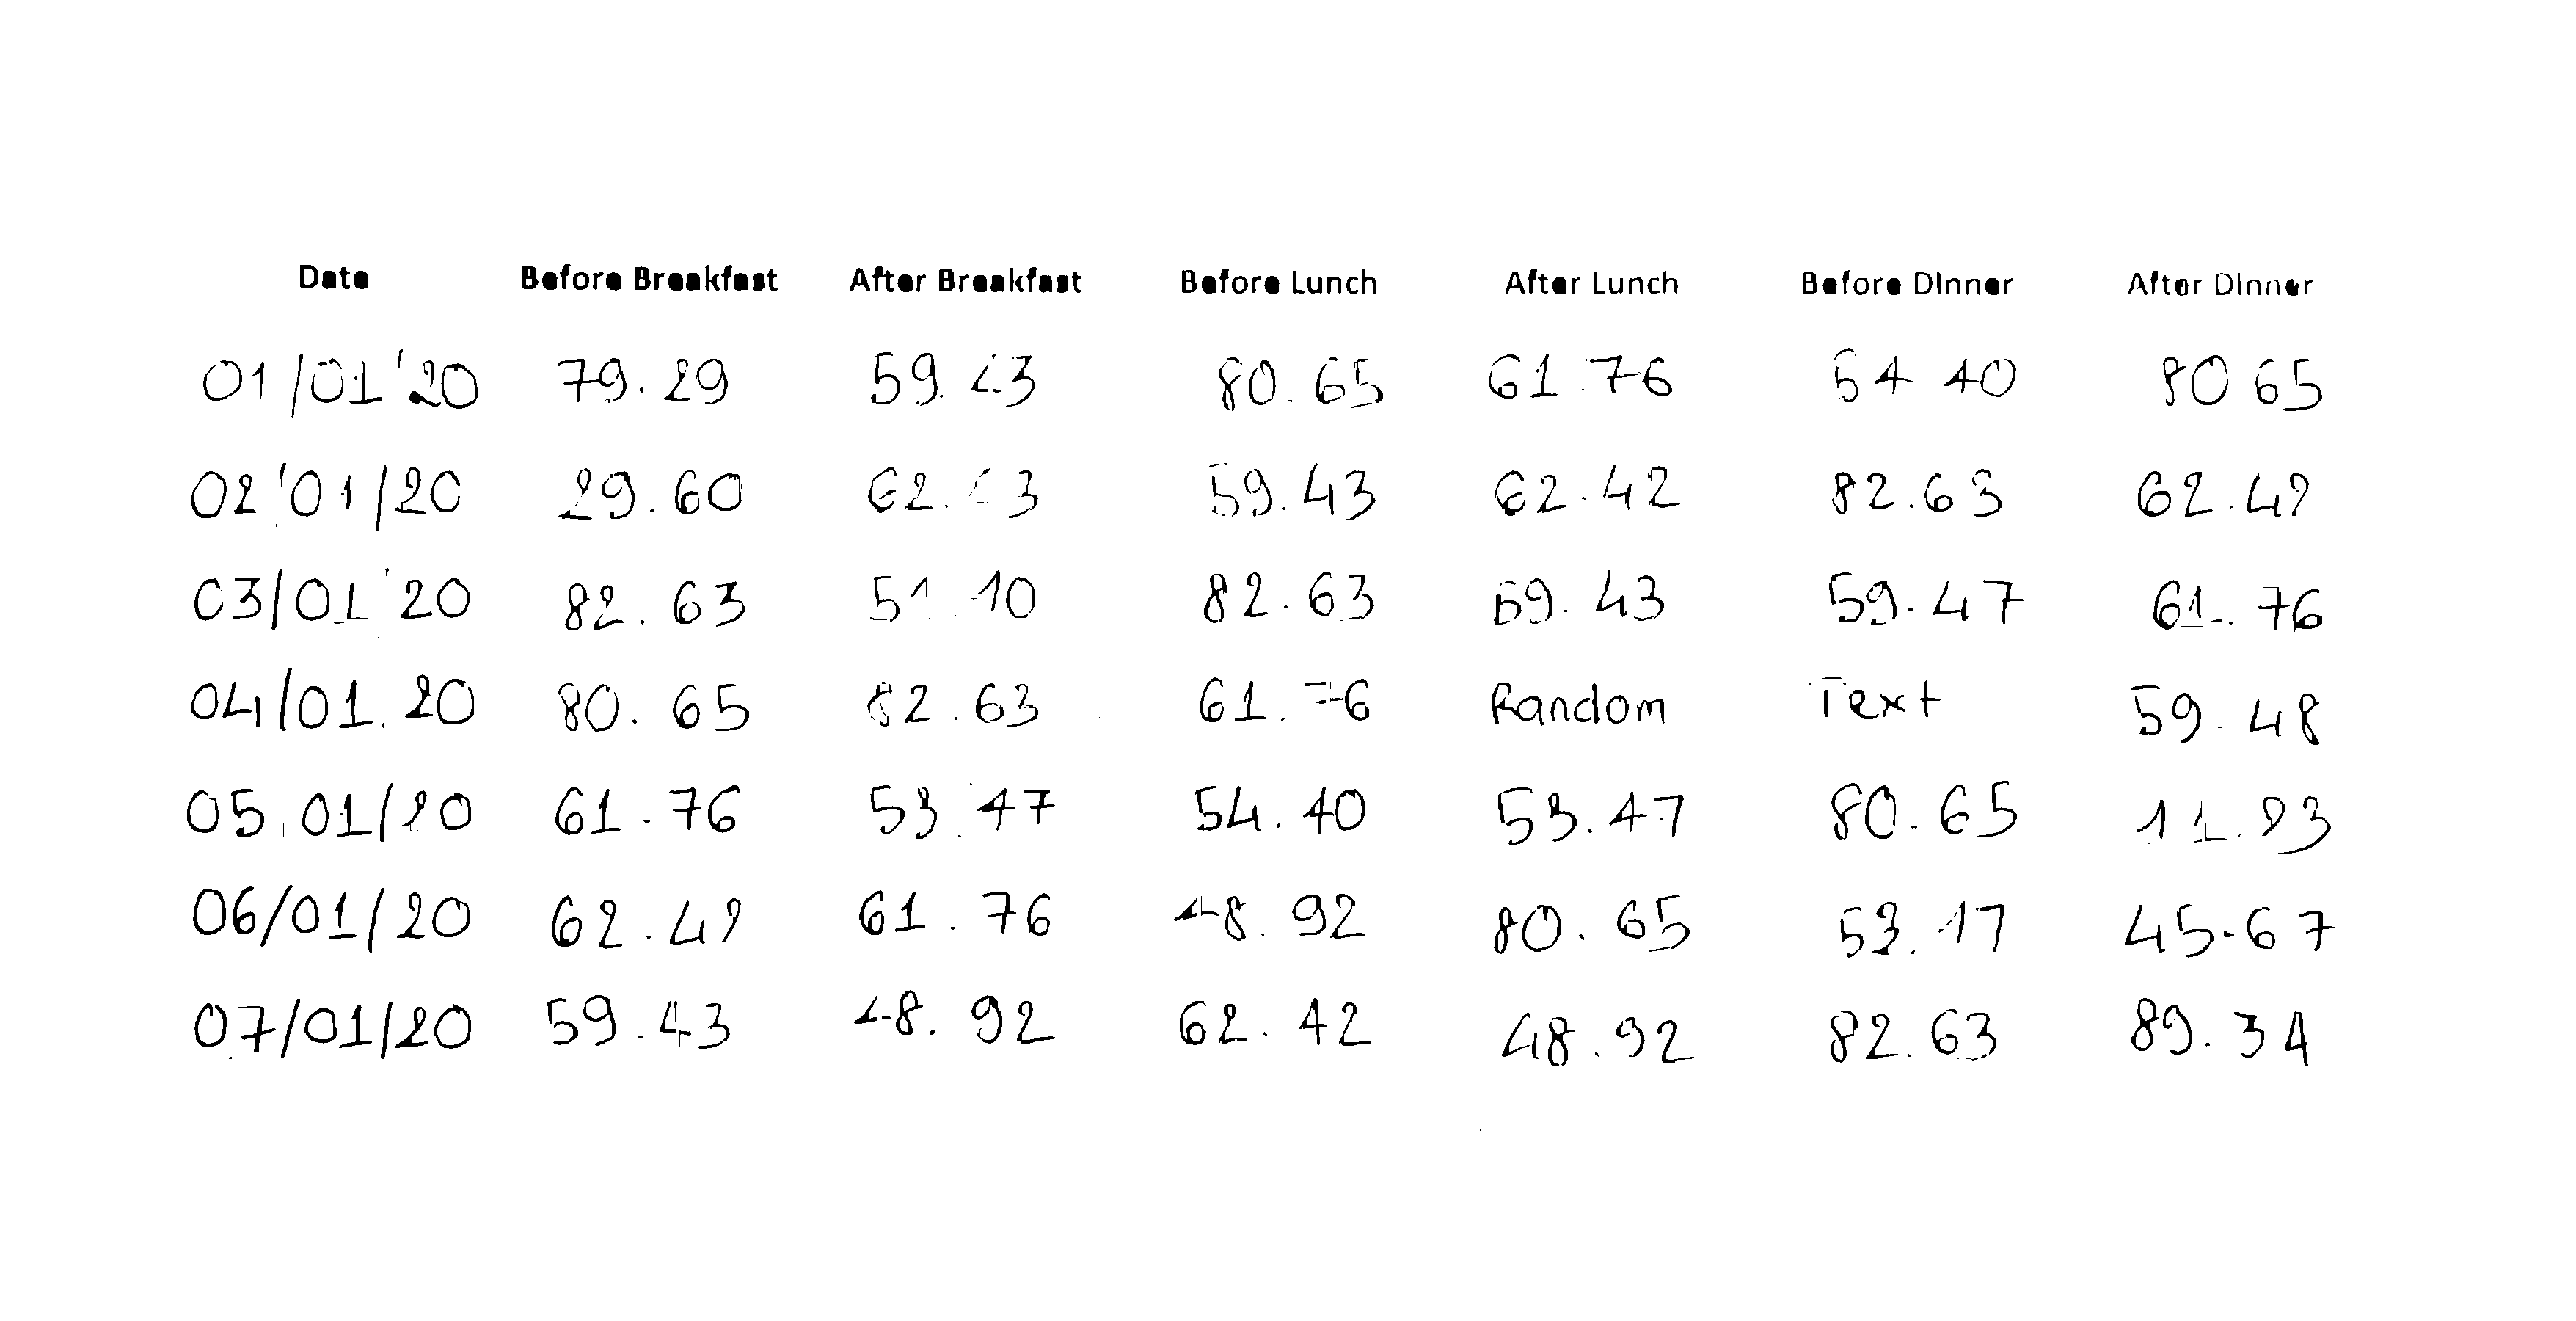 Date Before Breakfast After Breakfast Before Lunch After Lunch Before DInner After DInner
01/01/20 79.29 59.43 80.65 61.76 54.40 80.65
02/01/20 29.60 62.43 59.43 62.42 82.63 62.42
03/01/20 82.63 82.63 59.43 59.47 61.76
04/01/20 80.65 82.63 61.76 Random Text 59.48
05/01/20 61.76 53.47 54.40 53.47 80.65
06/01/20 62.42 61.76 48.92 80.65 45.67
07/01/20 59.43 48.92 62.42 48.92 82.63 89.34